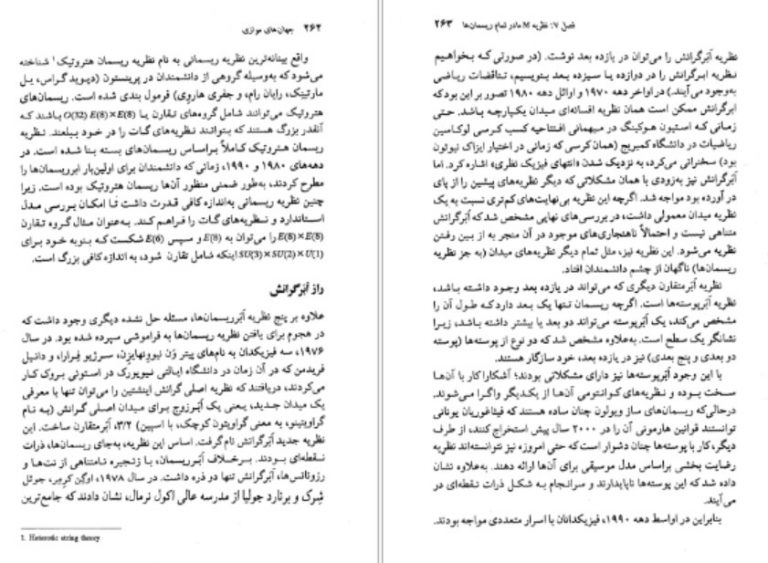 ۲۶۲ جهان‌های موازی
واقع بینانه‌ترین نظریه ریسمانی به نام نظریه ریسمان هتروتیک۱ شناخته
می‌شود که به‌وسیله گروهی از دانشمندان در پرینستون (دیوید گراس، یل
مارتینک، رایان رام، و جفری هاروی) فرمول بندی شده است. ریسمان‌های
هتروتیک می‌توانند شامل گروه‌های تقارن یا E(8)×E(8) یا O(32) باشند که
آنقدر بزرگ هستند که بتوانند نظریه‌های گات را در خود ببلعند. نظریه
ریسمان هتروتیک کاملاً براساس ریسمان‌های بسته بنا شده است. در
دهه‌های ۱۹۸۰ و ۱۹۹۰، زمانی که دانشمندان برای اولین‌بار ابرریسمان‌ها را
مطرح کردند، به‌طور ضمنی منظور آن‌ها ریسمان هتروتیک بوده است. زیرا
چنین نظریه ریسمانی به‌اندازه کافی قدرت داشت تا امکان بررسی مدل
استاندارد و نظریه‌های گات را فراهم کند. به‌عنوان مثال گروه تقارن
E(8)×E(8) را می‌توان به E(8) و سپس E(6) شکست که بنوبه خود برای
اینکه شامل تقارن SU(3)×SU(2)×U(1) شود، به اندازه کافی بزرگ است.
راز اَبَرگرانش
علاوه بر پنج نظریه اَبَرریسمان‌ها، مسئله حل نشده دیگری وجود داشت که
در هجوم برای یافتن نظریه ریسمان‌ها به فراموشی سپرده شده بود. در سال
۱۹۷۶، سه فیزیکدان به نام‌های پیتر وَن نیوونهایزن، سرژیو فِرارا، و دانیل
فریدمن که در آن زمان در دانشگاه ایالتی نیویورک در استونی بروک کار
می‌کردند، دریافتند که نظریه اصلی گرانش اینشتین را می‌توان تنها با معرفی
یک میدان جدید، یعنی یک اَبَرزوج برای میدان اصلی گرانش (به نام
گراویتینو، به معنی گراویتون کوچک، با اسپین) ۳/۲، اَبَرمتقارن ساخت. این
نظریه جدید اَبَرگرانش نام گرفت. اساس این نظریه، به‌جای ریسمان‌ها، ذرات
نقطه‌ای بودند. برخلاف اَبَرریسمان، با زنجیره نامتناهی از نت‌ها و
رزونانس‌ها، اَبَرگرانش تنها دو ذره داشت. در سال ۱۹۷۸، اوگن کرمر، جوئل
شِرک و برنارد جولیا از مدرسه عالی اکول نرمال، نشان دادند که جامع‌ترین
1. Heterotic string theory
فصل ۷: نظریه M مادر تمام ریسمان‌ها ۲۶۳
نظریه اَبَرگرانش را می‌توان در یازده بعد نوشت. (در صورتی که بخواهیم
نظریه ابرگرانش را در دوازده یا سیزده بعد بنویسیم، تناقضات ریاضی
به‌وجود می‌آیند.) در اواخر دهه ۱۹۷۰ و اوائل دهه ۱۹۸۰ تصور بر این بود که
ابرگرانش ممکن است همان نظریه افسانه‌ای میدان یکپارچه باشد. حتی
زمانی که استیون هوکینگ در میهمانی افتتاحیه کسب کرسی لوکاسین
ریاضیات در دانشگاه کمبریج (همان کرسی که زمانی در اختیار ایزاک نیوتون
بود) سخنرانی می‌کرد، به نزدیک شدن «انتهای فیزیک نظری» اشاره کرد. اما
اَبَرگرانش نیز به‌زودی با همان مشکلاتی که دیگر نظریه‌های پیشین را از پای
در آورده بود مواجه شد. اگرچه این نظریه بی‌نهایت‌های کم‌تری نسبت به یک
نظریه میدان معمولی داشت، در بررسی‌های نهایی مشخص شد که اَبَرگرانش
متناهی نیست و احتمالاً ناهنجاری‌های موجود در آن منجر به از بین رفتن
آن می‌شود. این نظریه نیز، مثل تمام دیگر نظریه‌های میدان (به جز نظریه
ریسمان‌ها) ناگهان از چشم دانشمندان افتاد.
نظریه اَبَرمتقارن دیگری که می‌تواند در یازده بعد وجود داشته باشد،
نظریه اَبَرپوسته‌ها است. اگرچه ریسمان تنها یک بعد دارد که طول آن را
مشخص می‌کند، یک اَبَرپوسته می‌تواند دو بعد یا بیشتر داشته باشد، زیرا
نشانگر یک سطح است. به‌علاوه مشخص شد که دو نوع از پوسته‌ها (پوسته
دو بعدی و پنج بعدی) نیز در یازده بعد، خود سازگار هستند.
با این وجود اَبَرپوسته‌ها نیز دارای مشکلاتی بودند؛ آشکارا کار با آن‌ها
سخت بوده و نظریه‌های کوانتومی آن‌ها از یکدیگر واگرا می‌شوند.
درحالی‌که ریسمان‌های ساز ویولون چنان ساده هستند که فیثاغوریان یونانی
توانستند قوانین هارمونی آن را در ۲۰۰۰ سال پیش استخراج کنند، از طرف
دیگر، کار با پوسته‌ها چنان دشوار است که حتی امروزه نیز نتوانسته‌اند نظریه
رضایت بخشی براساس مدل موسیقی برای آن‌ها ارائه دهند. به‌علاوه نشان
داده شد که این پوسته‌ها ناپایدارند و سرانجام به شکل ذرات نقطه‌ای در
می‌آیند.
بنابراین در اواسط دهه ۱۹۹۰، فیزیکدانان با اسرار متعددی مواجه بودند.